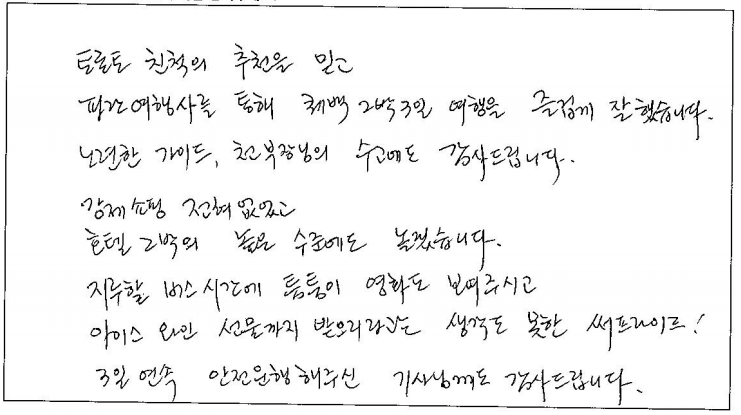 토론토 친척의 추천을 믿고
파란여행사를 통해 퀘백 2박3일 여행을 즐겁게 잘했습니다.
노련한 가이드, 천부장님의 수고에도 감사드립니다.
강제쇼핑 전혀없었고
호텔 2박의 높은 수준에도 놀랬습니다.
지루할 버스시간에 틈틈이 영화도 보여주시고
아이스 와인 선물까지 받으리라고는 생각도 못한 써프라이즈!
3일 연속 안전운행해주신 기사님께도 감사드립니다.